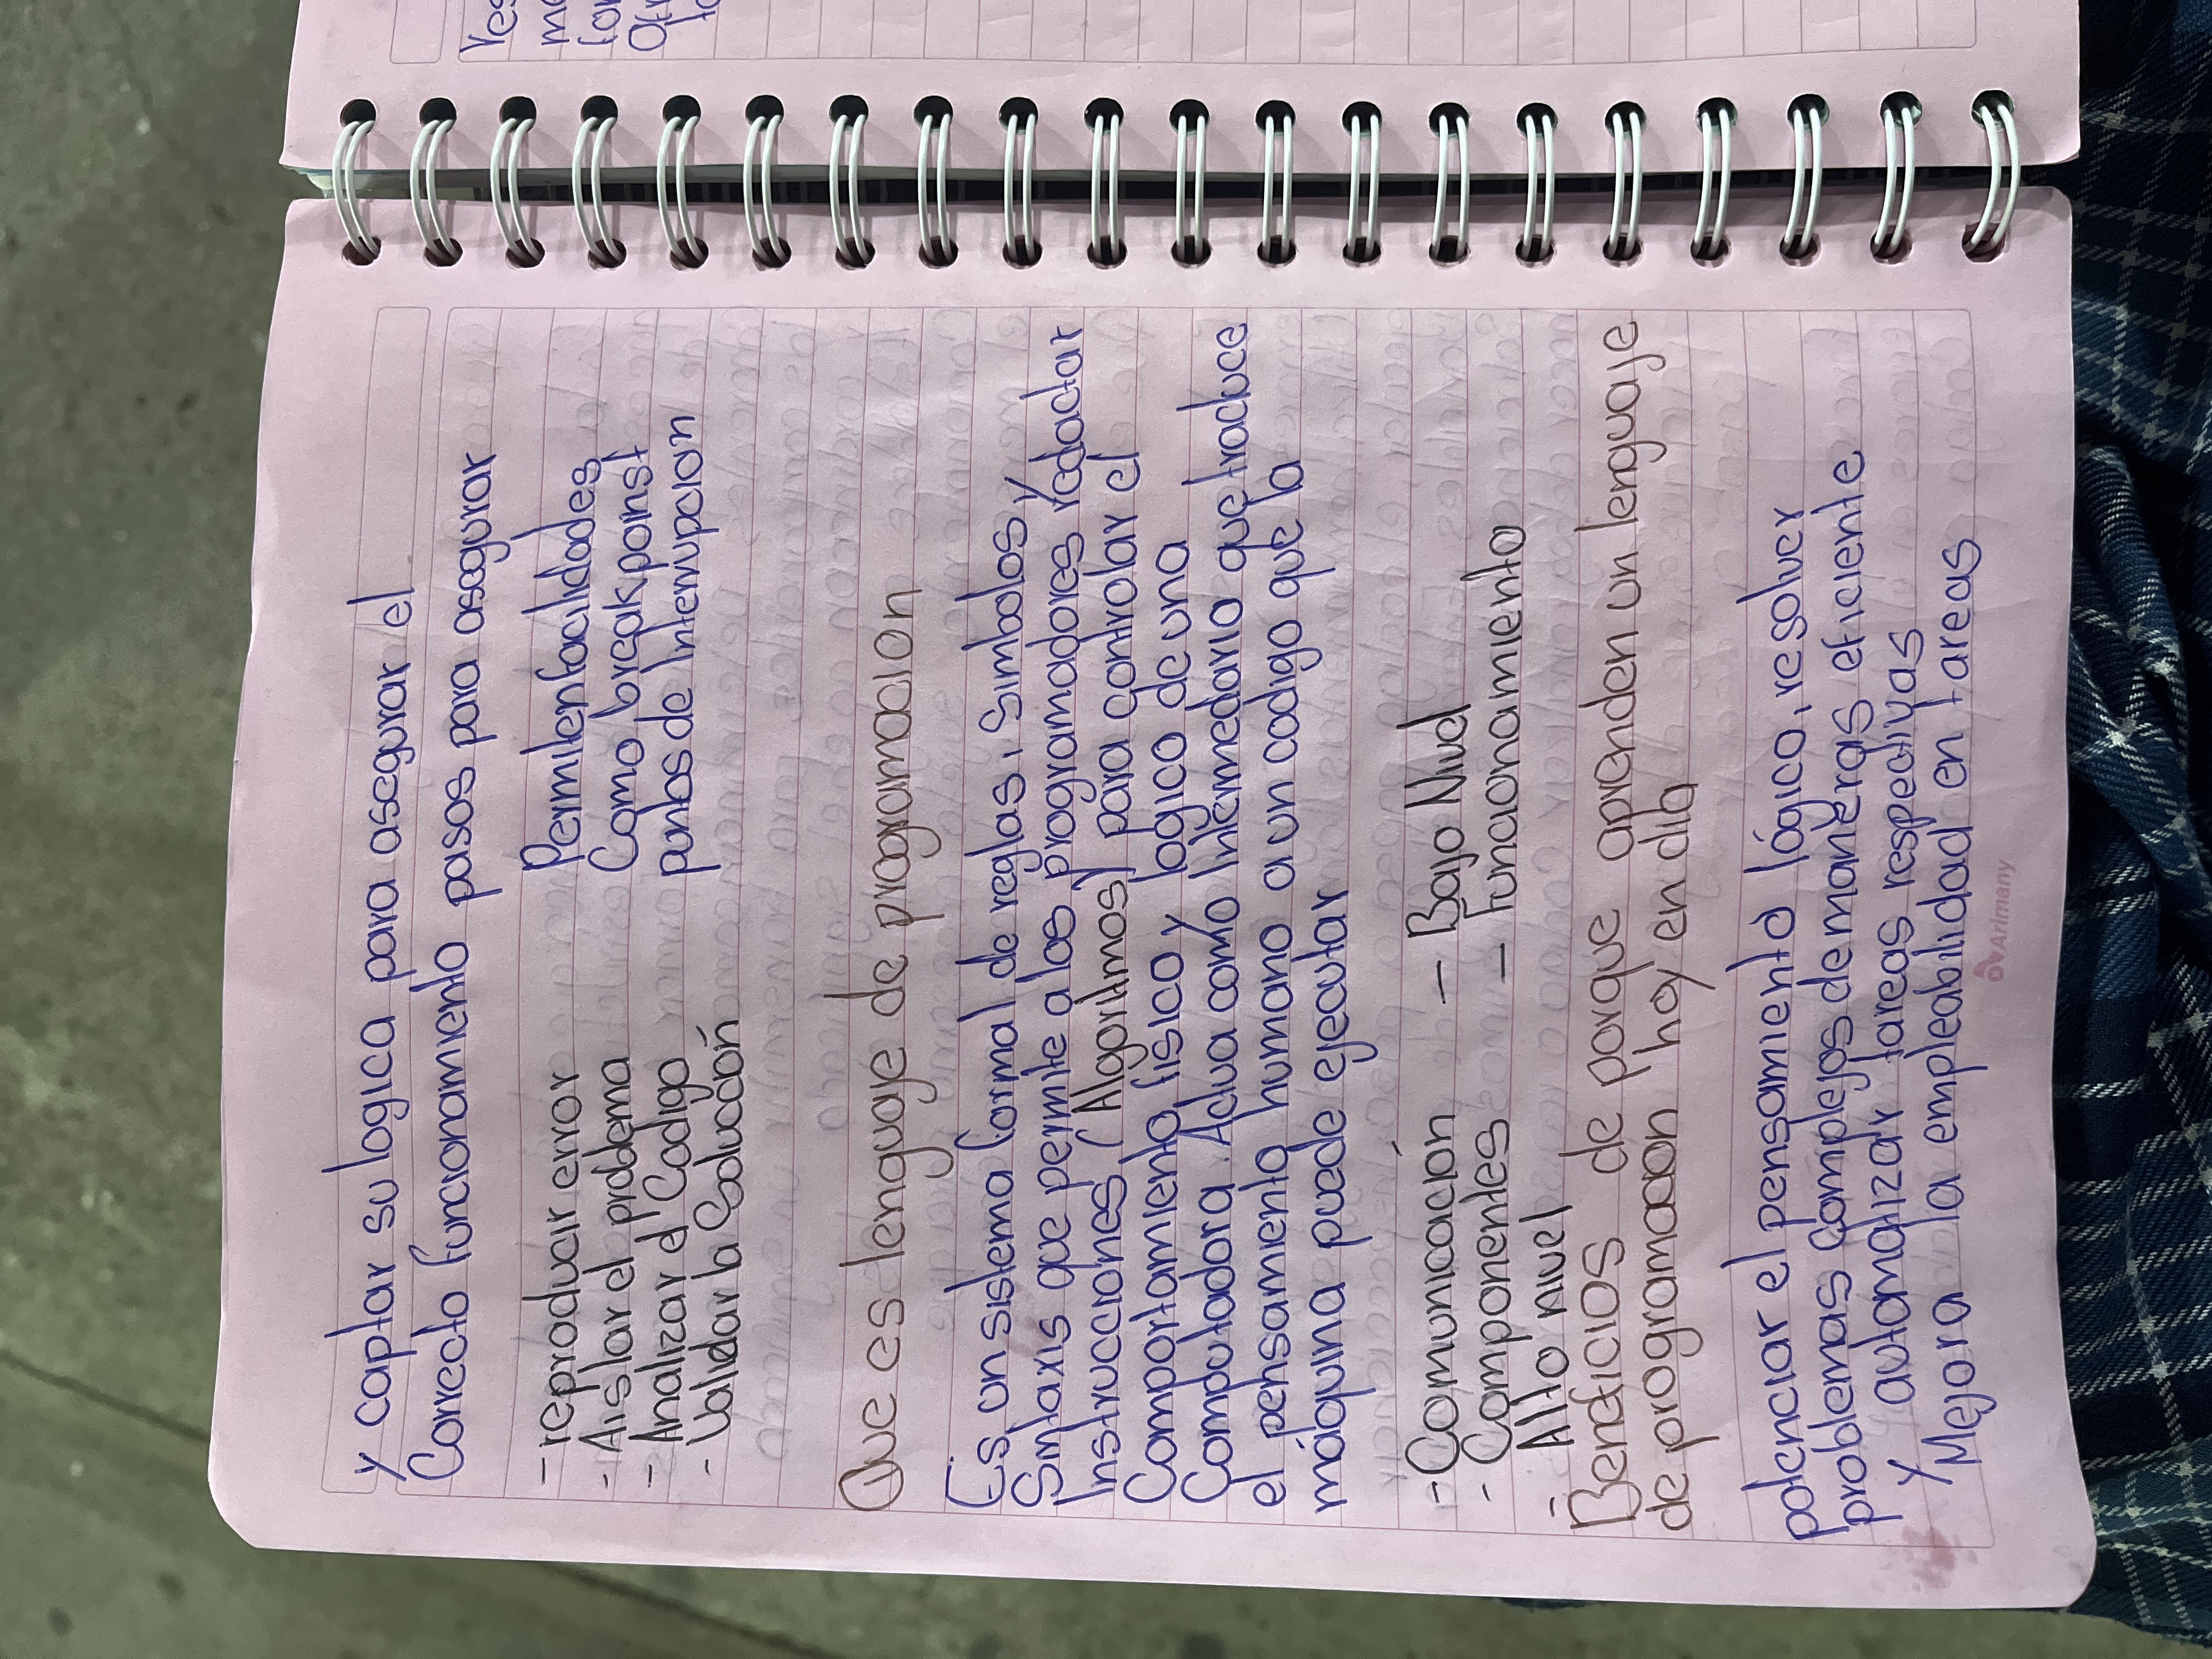 y captar su logica para asegurar el
Correcto funcionamiento pasos para asegurar
- reproducir error
- Aislar el problema
- Analizar el Codigo
- Validar la Solución
Permiten facilidades
Como breakponst
puntos de Interrupcion
Que es lenguaje de programacion
Es un sistema formal de reglas, simbolos y
Sintaxis que permite a los programadores redactar
Instrucciones (Algoritmos) para controlar el
Comportamiento fisico y logico de una
Computadora. Actua como Intermediario que traduce
el pensamiento humano a un codigo que la
máquina puede ejecutar
- Comunicación - Bajo Nivel
- Componentes - funcionamiento
- Alto nivel
Beneficios de porque aprenden un lenguaje
de programacion hoy en dia
potenciar el pensamiento lógico, resolver
problemas complejos de maneras eficiente
y automatizar tareas respetivas
Mejora la empleabilidad en tareas
Arimany
Yes